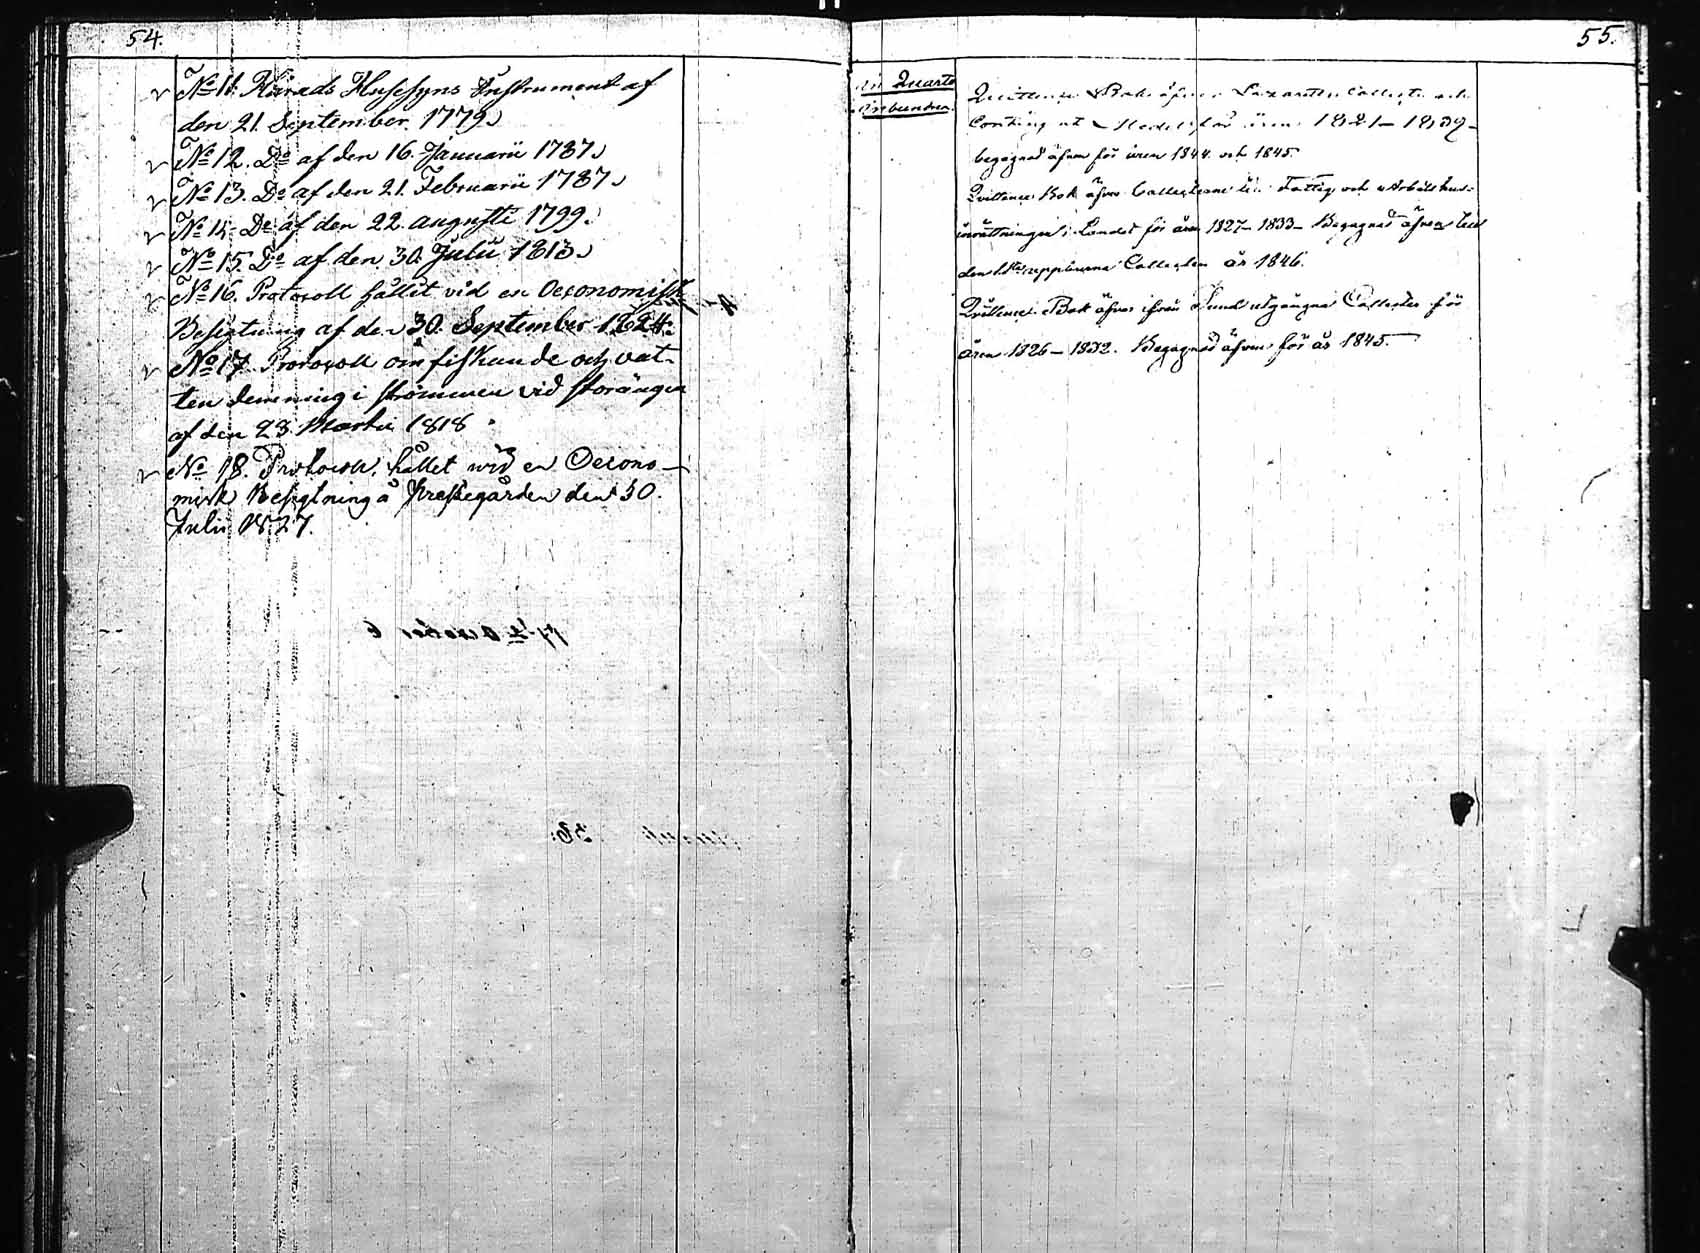 54.
No 11. Härads Husesyns Instrument af
den 21. September 1779.
No 12. Do af den 16. Januarii 1787.
No 13. Do af den 21. Februarii 1787.
No 14. Do af den 22. augusti 1799.
No 15. Do af den 30. Julii 1813.
No 16. Protocoll hållit vid en Oeconomisk
Besigtning af den 30. September 1824.
No 17. Protocoll om fiskande och vat-
ten demning i strömmen vid Storängen
af den 23. Martii 1818.
No 18. Protocoll, hållet wid en Oecono-
misk Besigtning å prestegården den 30.
Julii 1827.
55.
in Quarto
inbunden.
Quittence Bok öfver Lazaretts Collecte och
Medel för åren 1821–1839–
begagnad äfven för åren 1844. och 1845.
Qvittence Bok öfver Collecterne till Fattig och Arbetshus-
inrättningen i Landet för åren 1827–1833– Begagnad äfven till
den uppburna Collecten år 1846.
Qvittence Bok öfver ifrån Sund utgångna Collecter för
åren 1826–1832. Begagnad äfven för år 1845.